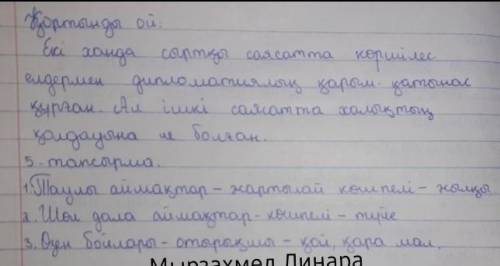 Қортынды ой:
Екі ханда сыртқы саясатта көршілес
елдермен дипломатиялық қарым-қатынас
құрған. Ал ішкі саясатта халықтың
қолдауына ие болған.
5-тапсырма.
1. Таулы аймақтар - жартылай көшпелі - жылқы
2. Шөл дала аймақтар - көшпелі - түйе
3. Өзен бойлары - отырықшы - қой, қара мал.
Мырзахмед Динара